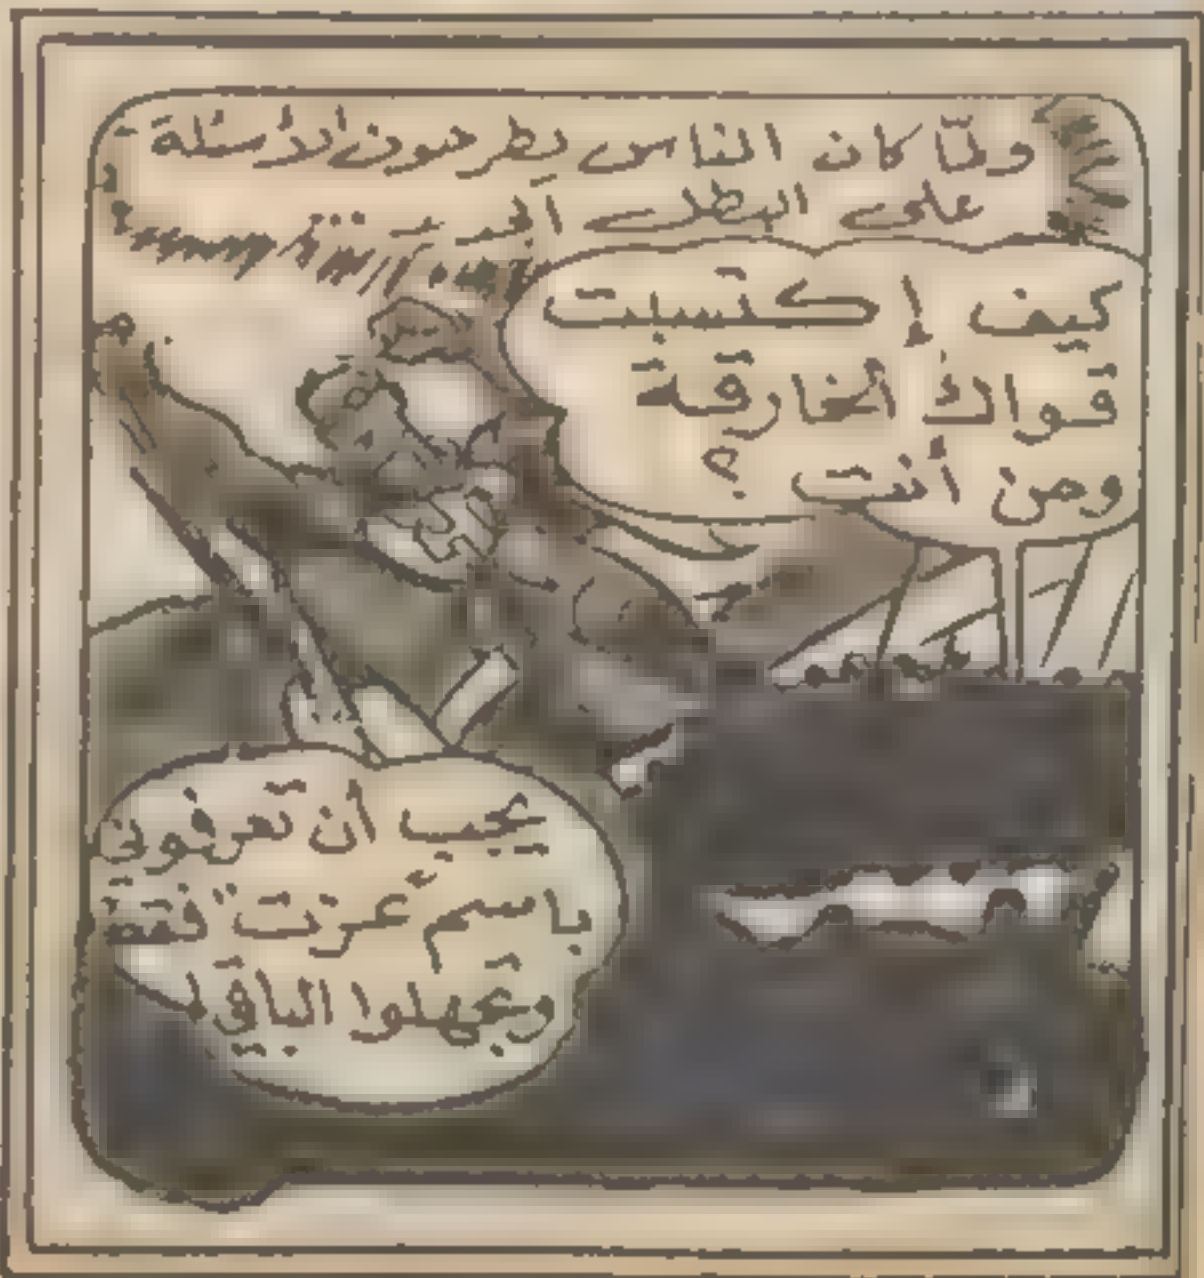 ولمّا كان الناس يطرحون الأسئلة
على البطل
كيف إكتسبت
قواك الخارقة
ومن أنت ؟
يجب أن تعرفوني
باسم عزت فقط
وتجهلوا الباقي